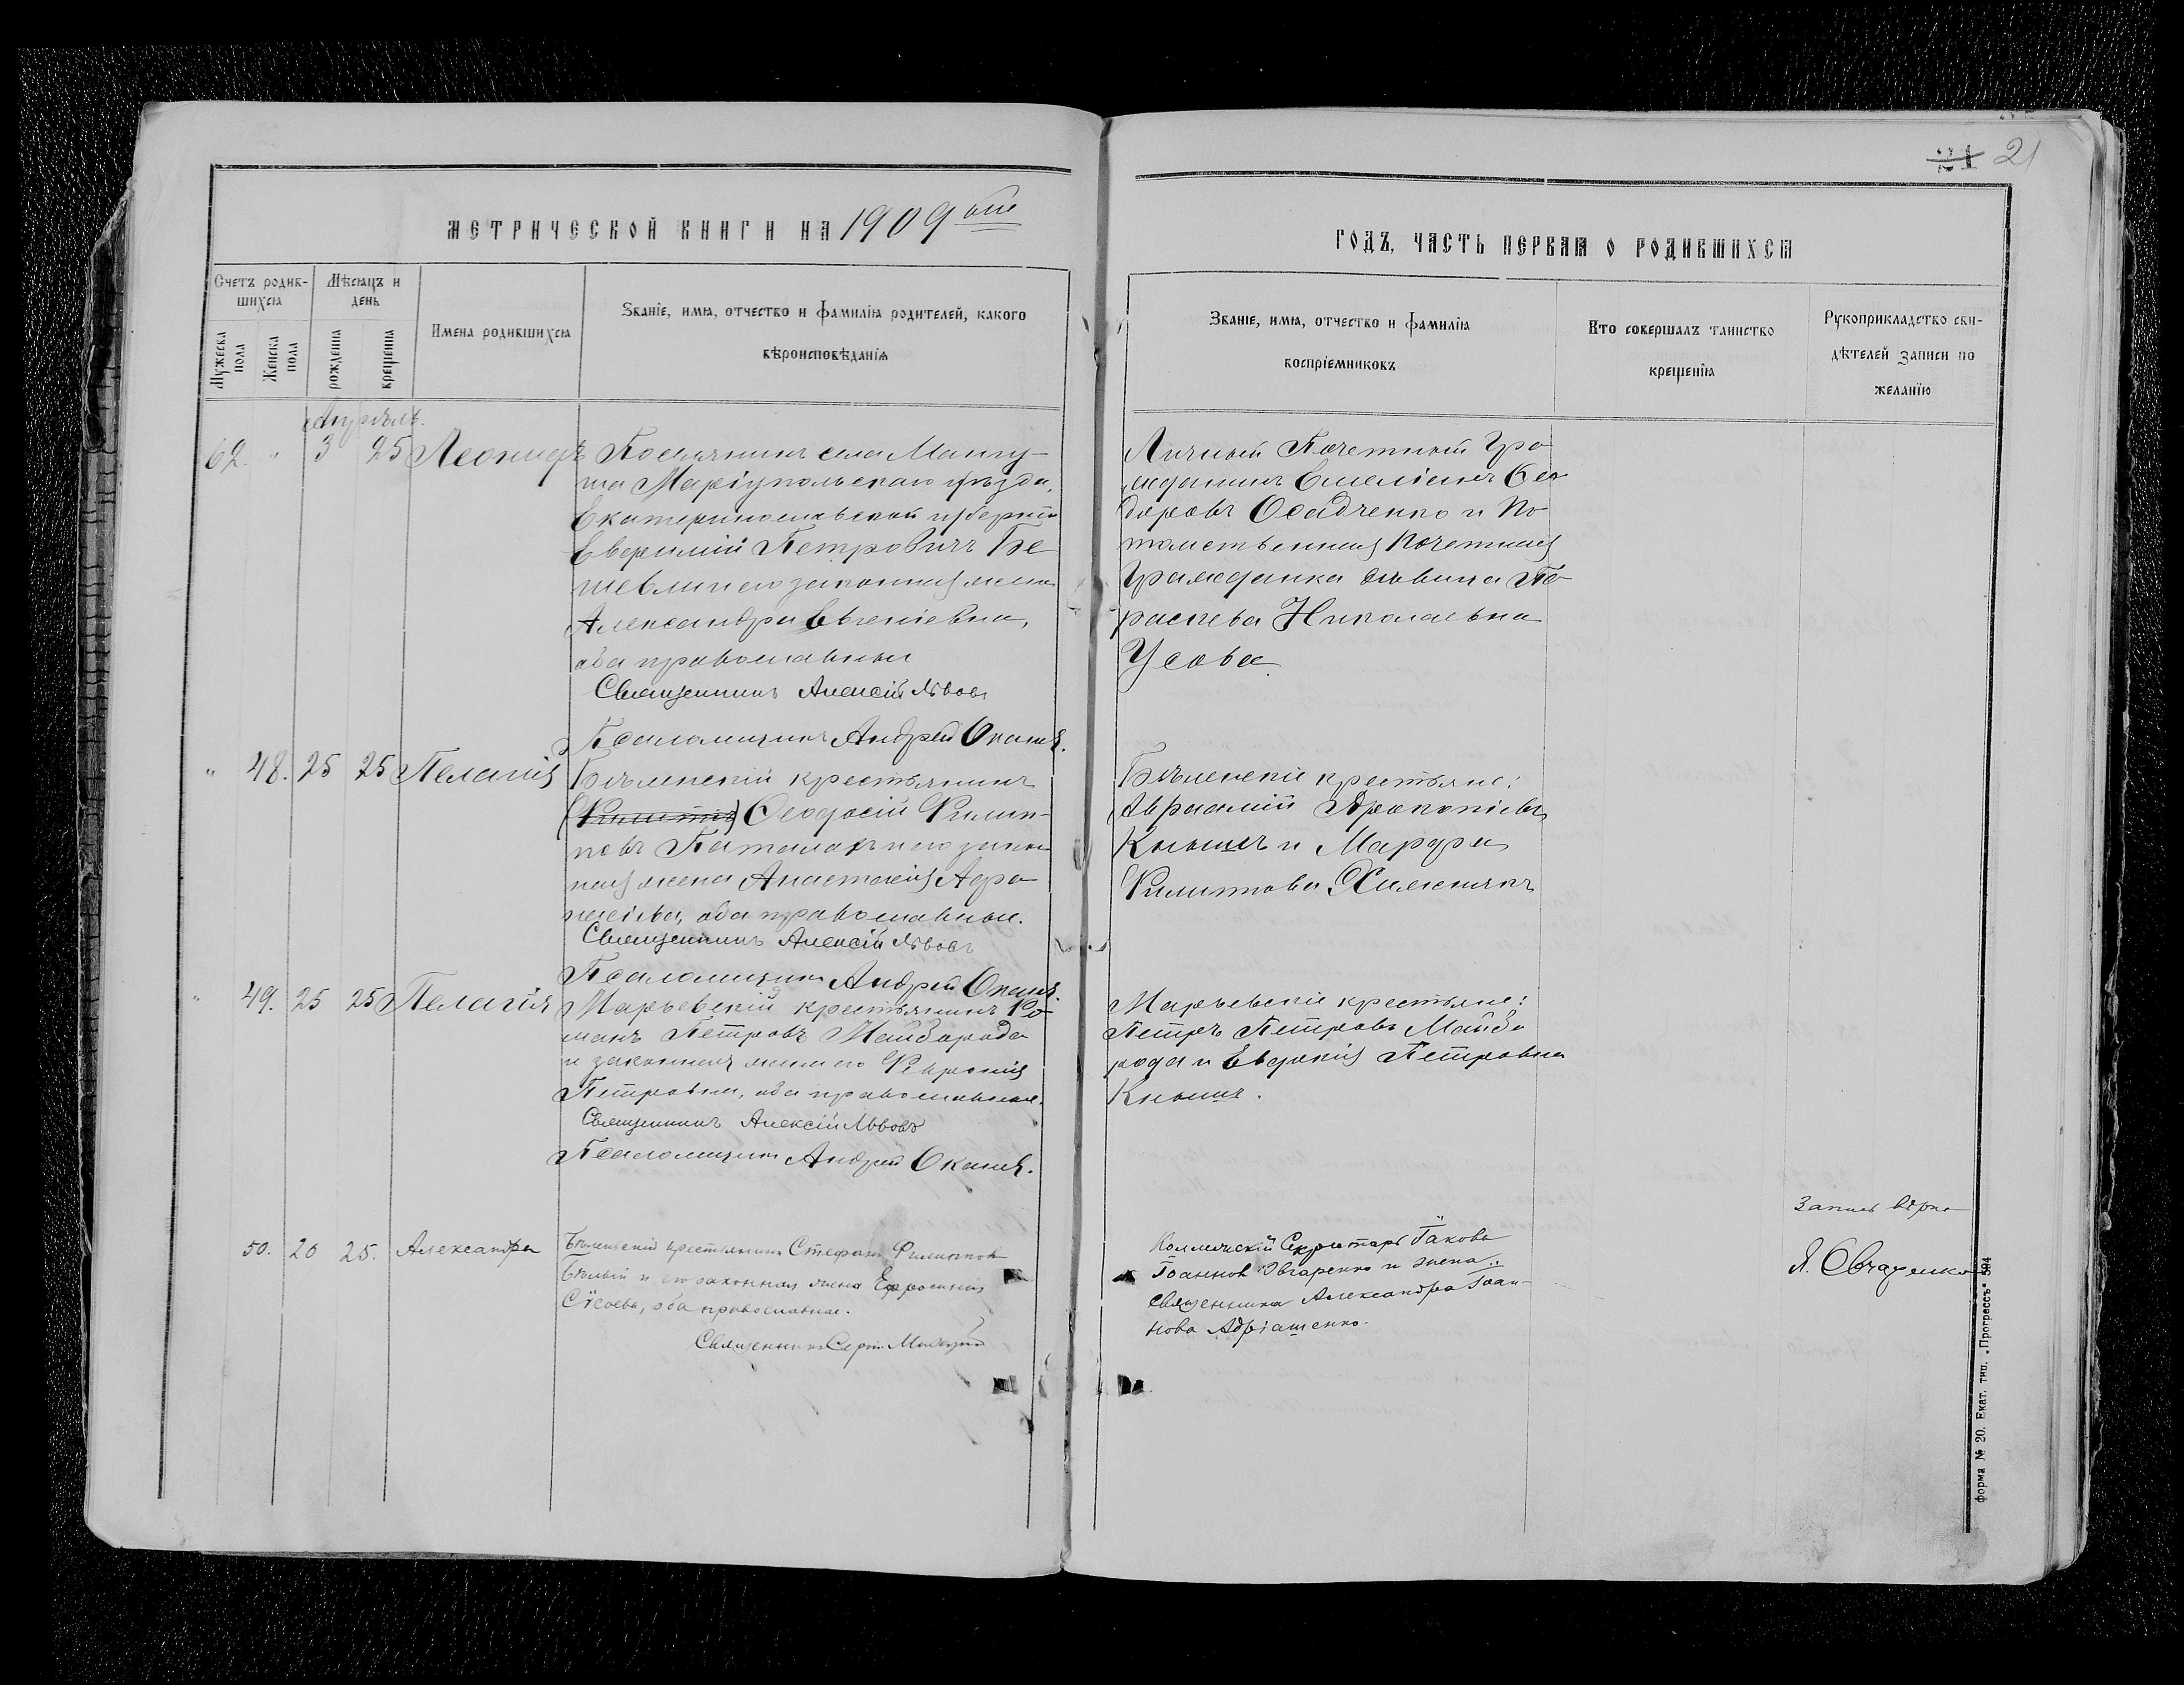 21 21
МЕТРИЧЕСКОЙ КНИГИ НА 1909 ый
ГОДЪ, ЧАСТЬ ПЕРВАЯ О РОДИВШИХСЯ
Счетъ родив-
шихся
Мѣсяцъ и
день
Имена родившихся
Званіе, имя, отчество и фамилія родителей, какого
вѣроисповѣданія
Мужеска пола
Женска пола
рожденія
крещенія
Званіе, имя, отчество и фамилія
воспріемниковъ
Кто совершалъ таинство
крещенія
Рукоприкладство сви-
дѣтелей записи по
желанію
Апрѣль.
62. " 3 25 Леонидъ
Поселянинъ села Мангу-
ша Маріупольскаго уѣзда,
Екатеринославской губерніи
Евфимій Петровичъ Бе
шевли и его законная жена
Александра Евгеніевна,
оба православные
Священникъ Алексій Львовъ
Псаломщикъ Андрей
Личный Почетный Гра
жданинъ Емеліанъ Ѳео
доровъ Осадченко и По
томственная Почетная
Гражданка дѣвица Па
раскева Николаевна
Усова.
" 48. 25 25 Пелагія
Бѣленскій крестьянинъ
(Филиппъ) Ѳеодосій Филип-
повъ и его закон
ная жена Анастасія
оба православные.
Священникъ Алексій Львовъ
Псаломщикъ Андрей
Бѣленскіе крестьяне:
Авраамій Прокопіевъ
Кнышъ и Марфа
Филиппова
" 49. 25 25 Пелагія
Марьевскій крестьянинъ Ро
манъ Петровъ Майборода
и законная жена его Феѵронія
Петровна, оба православные.
Священникъ Алексій Львовъ
Псаломщикъ Андрей
Марьевскіе крестьяне:
Петръ Петровъ Майбо
рода и Евдокія Петровна
Кнышъ.
50. 20 25. Александра
Бѣленьскій крестьянинъ Стефанъ Филиппов
Бѣлый и его законная жена Ефросинія
Сѵсоева, оба православные.
Священникъ Сергій
Коллежскій Секретарь Іаковъ
Іоаннов Овчаренко и жена
священника Александра Іоан-
нова Адріашенко.
Запись вѣрна
Я. Овчаренко
Форма № 20. Екат. тип. „Прогрессъ“ 504